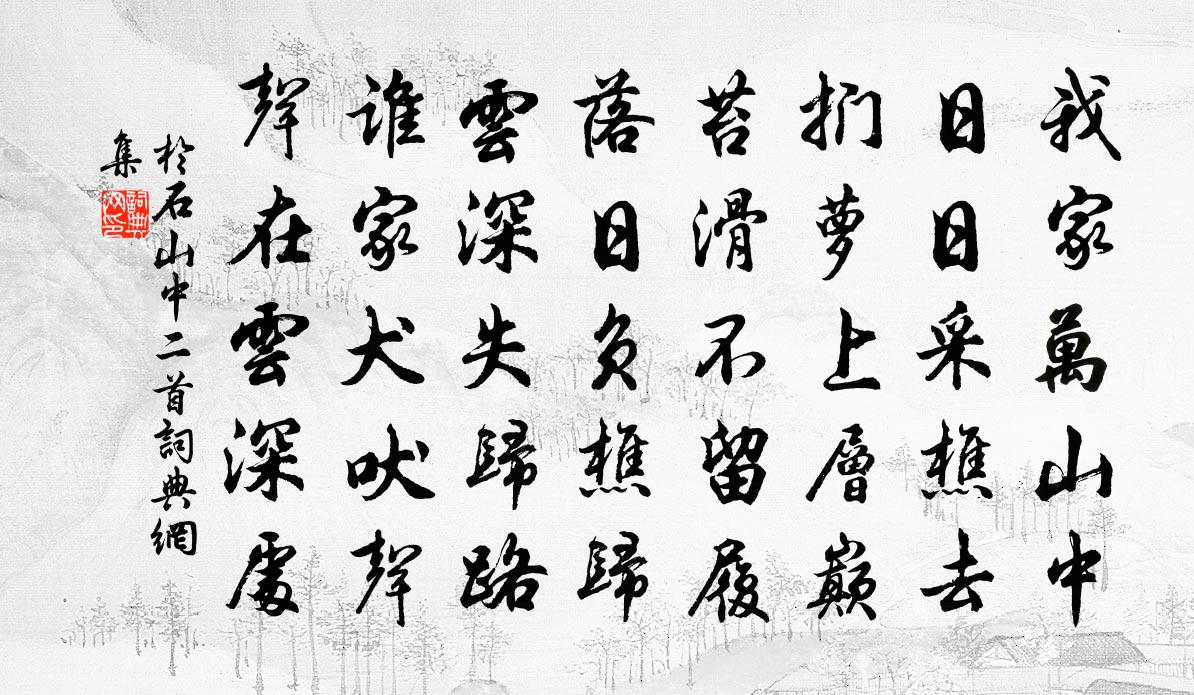 我家萬山中
日日采樵去
捫萝上層巔
苔滑不留履
落日負樵歸
雲深失歸路
誰家犬吠聲
聲在雲深處
於石山中二首詞典網
集
詞典網印